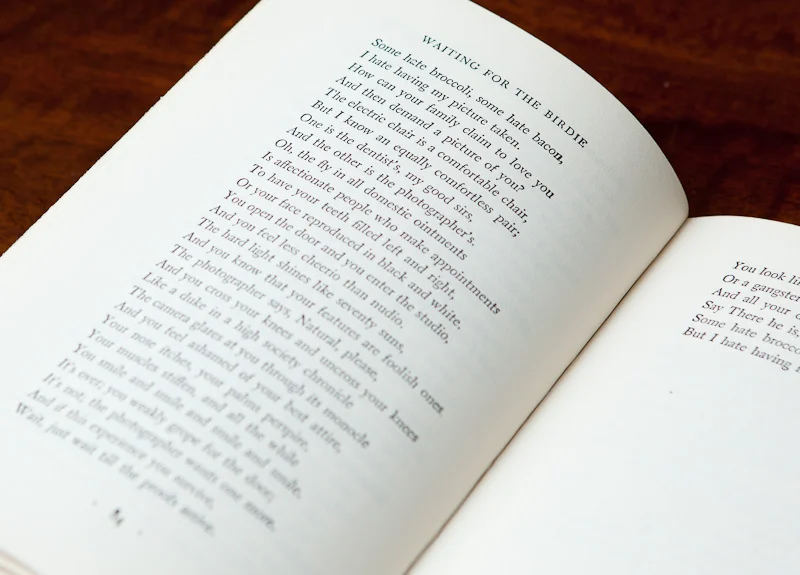 WAITING FOR THE BIRDIE
Some hate broccoli, some hate bacon,
I hate having my picture taken.
How can your family claim to love you
And then demand a picture of you?
The electric chair is a comfortable chair,
But I know an equally comfortless pair;
One is the dentist's, my good sirs,
And the other is the photographer's.
Oh, the fly in all domestic ointments
Is affectionate people who make appointments
To have your teeth filled left and right,
Or your face reproduced in black and white.
You open the door and you enter the studio,
And you feel less cheerio than nudio.
The hard light shines like seventy suns,
And you know that your features are foolish ones.
The photographer says, Natural, please,
And you cross your knees and uncross your knees
Like a duke in a high society chronicle
The camera glares at you through its monocle
And you feel ashamed of your best attire,
Your nose itches, your palms perspire,
Your muscles stiffen, and all the while
You smile and smile and smile and smile.
It's over; you weakly grope for the door;
It's not; the photographer wants one more.
And if this experience you survive,
Wait, just wait till the proofs arrive.
You look
Or a gangster
And all your
Say There he is,
Some hate
But I hate having